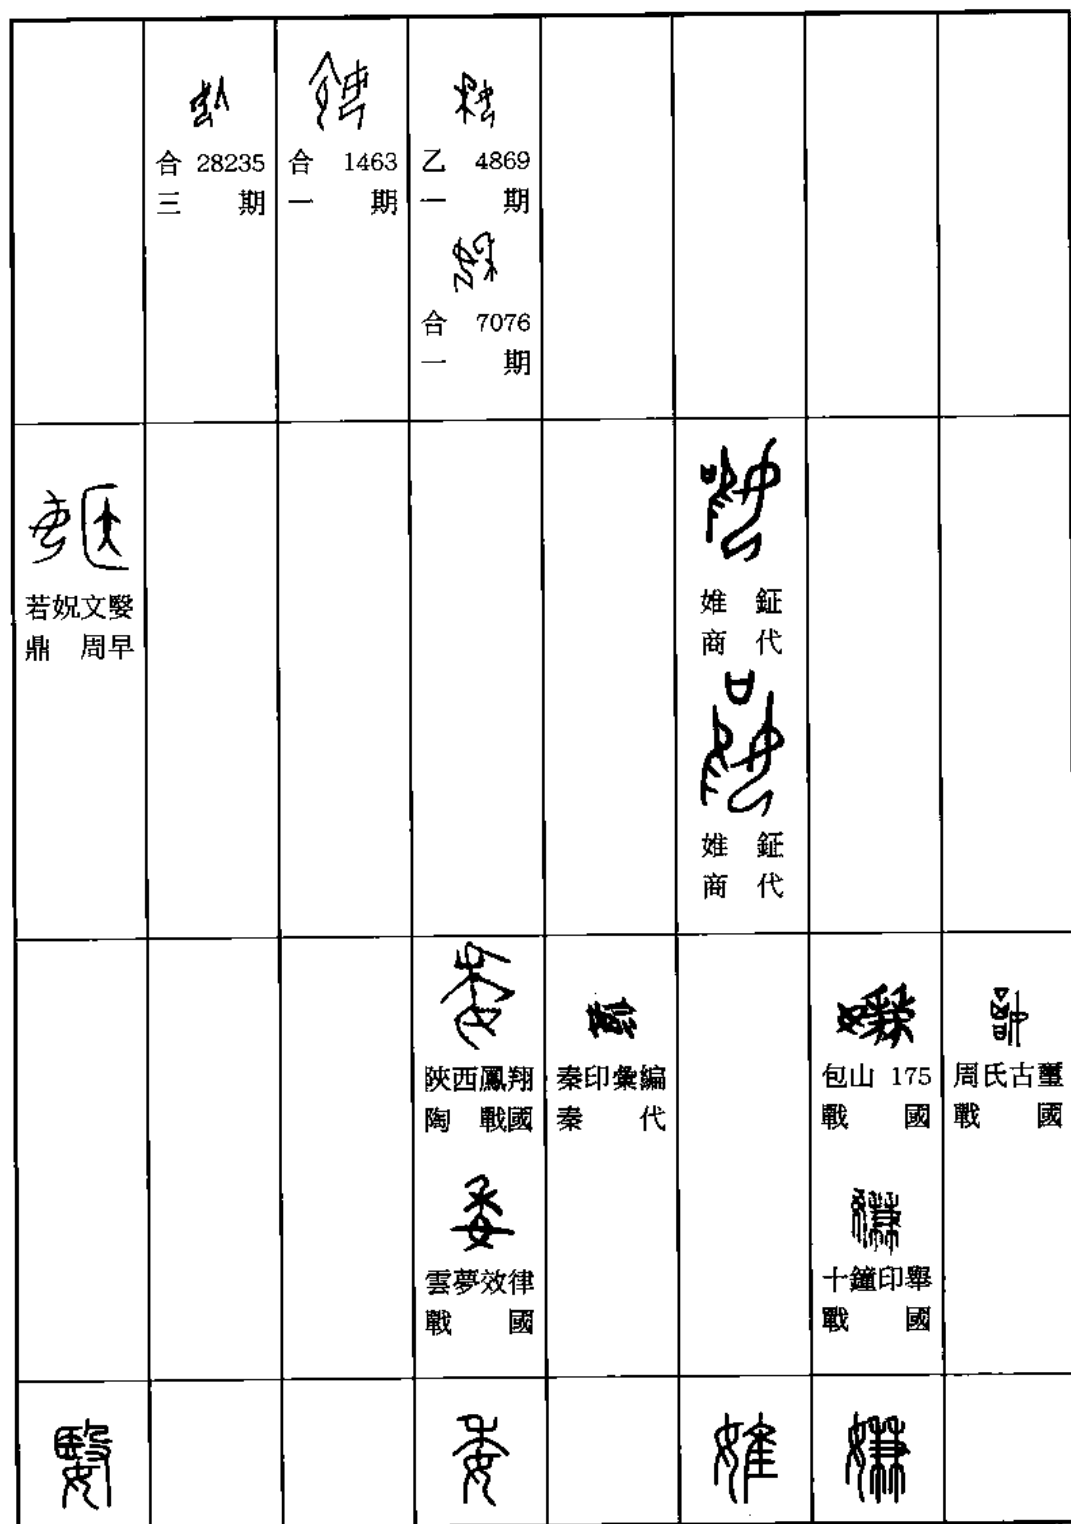 合 28235
三 期
合 1463
一 期
乙 4869
一 期
合 7076
一 期
若妮文嫛
鼎 周早
婎 鉦
商 代
婎 鉦
商 代
陝西鳳翔
陶 戰國
雲夢效律
戰 國
秦印彙編
秦 代
包山 175
戰 國
十鐘印舉
戰 國
周氏古璽
戰 國
嫛
委
婎
嫌